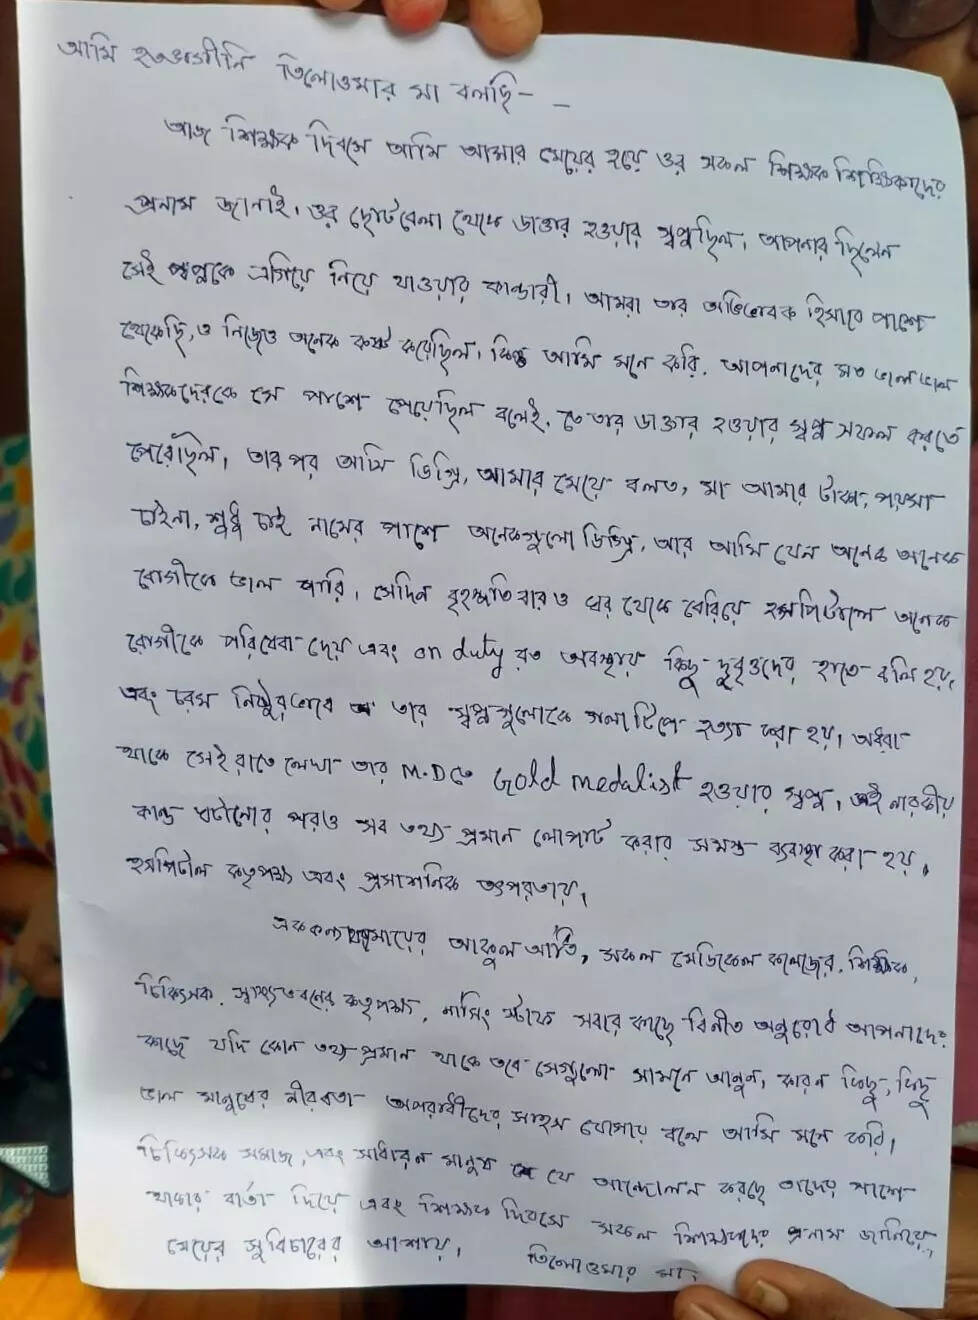 আমি হতভাগীনি তিলোত্তমার মা বলছি- -
আজ শিক্ষক দিবসে আমি আমার মেয়ের হয়ে ওর সকল শিক্ষক শিক্ষিকাদের
প্রনাম জানাই। ওর ছোটবেলা থেকে ডাক্তার হওয়ার স্বপ্ন ছিল, আপনার ছিলেন
সেই স্বপ্নকে এগিয়ে নিয়ে যাওয়ার কান্ডারী। আমরা তার অভিভাবক হিসাবে পাশে
থেকেছি, ও নিজেও অনেক কষ্ট করেছিল। কিন্তু আমি মনে করি, আপনাদের মত ভাল ভাল
শিক্ষকদেরকে সে পাশে পেয়েছিল বলেই, তার ডাক্তার হওয়ার স্বপ্ন সফল করতে
পেরেছিল। তারপর আমি ডিগ্রি, আমার মেয়ে বলত, মা আমার টাকা, পয়সা
চাইনা, শুধু চাই নামের পাশে অনেকগুলো ডিগ্রি, আর আমি যেন অনেক অনেক
রোগীকে ভাল পারি। সেদিন বৃহস্পতিবারও ঘর থেকে বেরিয়ে হসপিটালে অনেক
রোগীকে পরিষেবা দেয় এবং on duty রত অবস্থায় কিছু দুবৃত্তদের হাতে বলি হয়,
এবং চরম নিষ্ঠুরভাবে তার স্বপ্নগুলোকে গলা টিপে হত্যা করা হয়। অধরা
থাকে সেই রাতে লেখা তার M.D তে Gold medalist হওয়ার স্বপ্ন। এই নারকীয়
কান্ড ঘটানোর পরও সব তথ্য প্রমান লোপাট করার সমস্ত ব্যবস্থা করা হয়,
হসপিটাল কতৃপক্ষ এবং প্রসাশনিক তৎপরতায়।
এক মায়ের আকুল আর্তি, সকল মেডিকেল কলেজের, শিক্ষক,
চিকিৎসক, স্বাস্থ্যভবনের কতৃপক্ষ, নার্সিং স্টাফ সবার কাছে বিনীত অনুরোধ আপনাদের
কাছে যদি কোন তথ্য প্রমান থাকে তবে সেগুলো সামনে আনুন, কারন কিছু, কিছু
ভাল মানুষের নীরবতা অপরাধীদের সাহস যোগায় বলে আমি মনে করি।
চিকিৎসক সমাজ, এবং সাধারন মানুষ যে আন্দোলন করছে তাদের পাশে
থাকার বার্তা দিয়ে এবং শিক্ষক দিবসে সকল শিক্ষকদের প্রনাম জানিয়ে,
মেয়ের সুবিচারের আশায়। তিলোত্তমার মা।